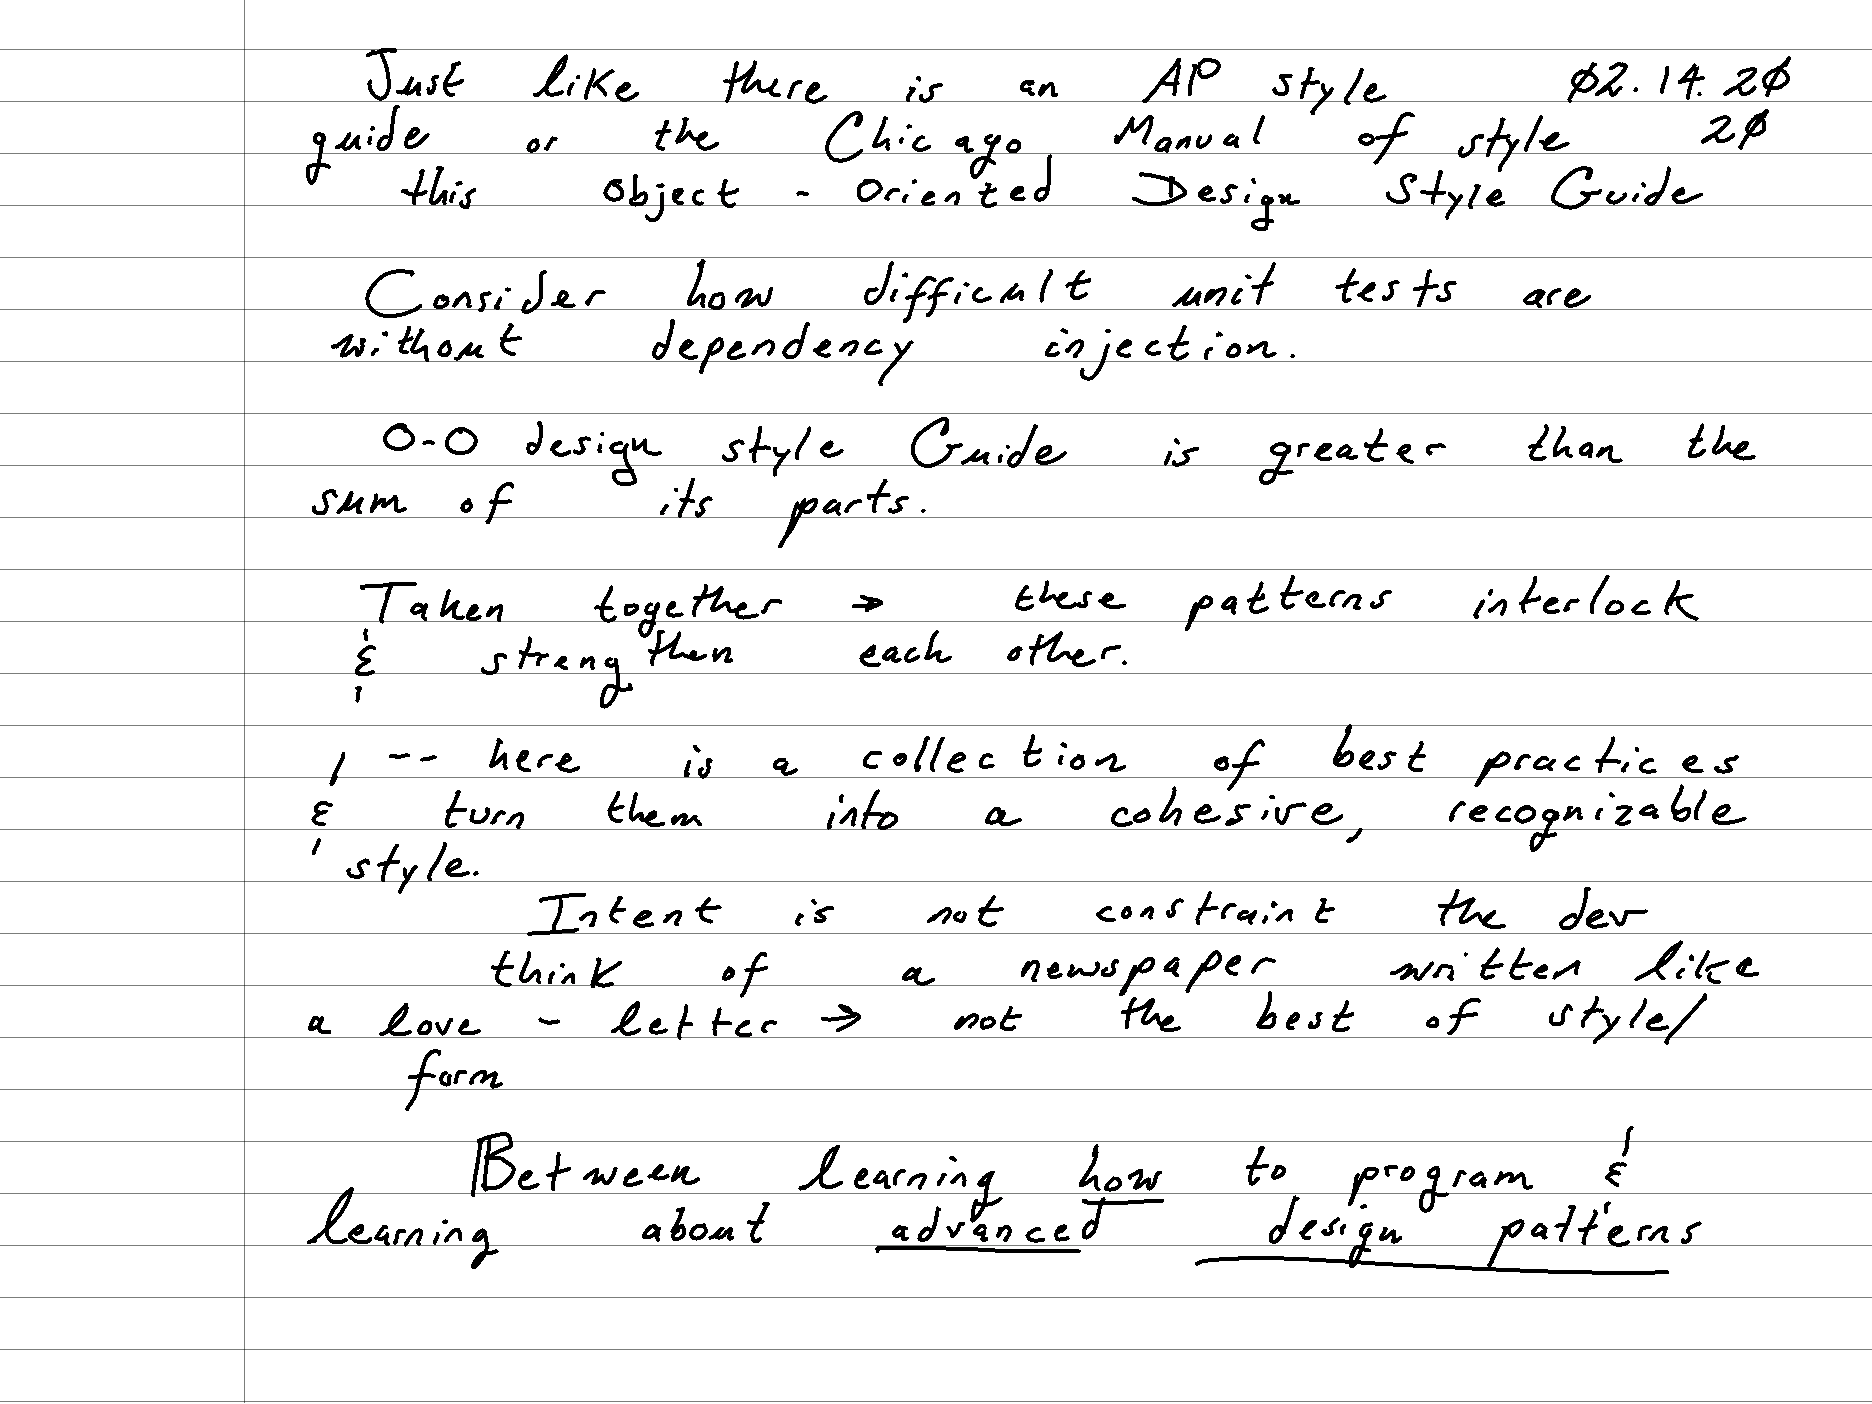 Just like there is an AP style 02.14.20
guide or the Chicago Manual of style 20
this Object - Oriented Design Style Guide
Consider how difficult unit tests are
without dependency injection.
O-O design style Guide is greater than the
sum of its parts.
Taken together → these patterns interlock
& strengthen each other.
-- here is a collection of best practices
& turn them into a cohesive, recognizable
style.
Intent is not constraint the dev
think of a newspaper written like
a love - letter → not the best of style/
form
Between learning how to program &
learning about advanced design patterns